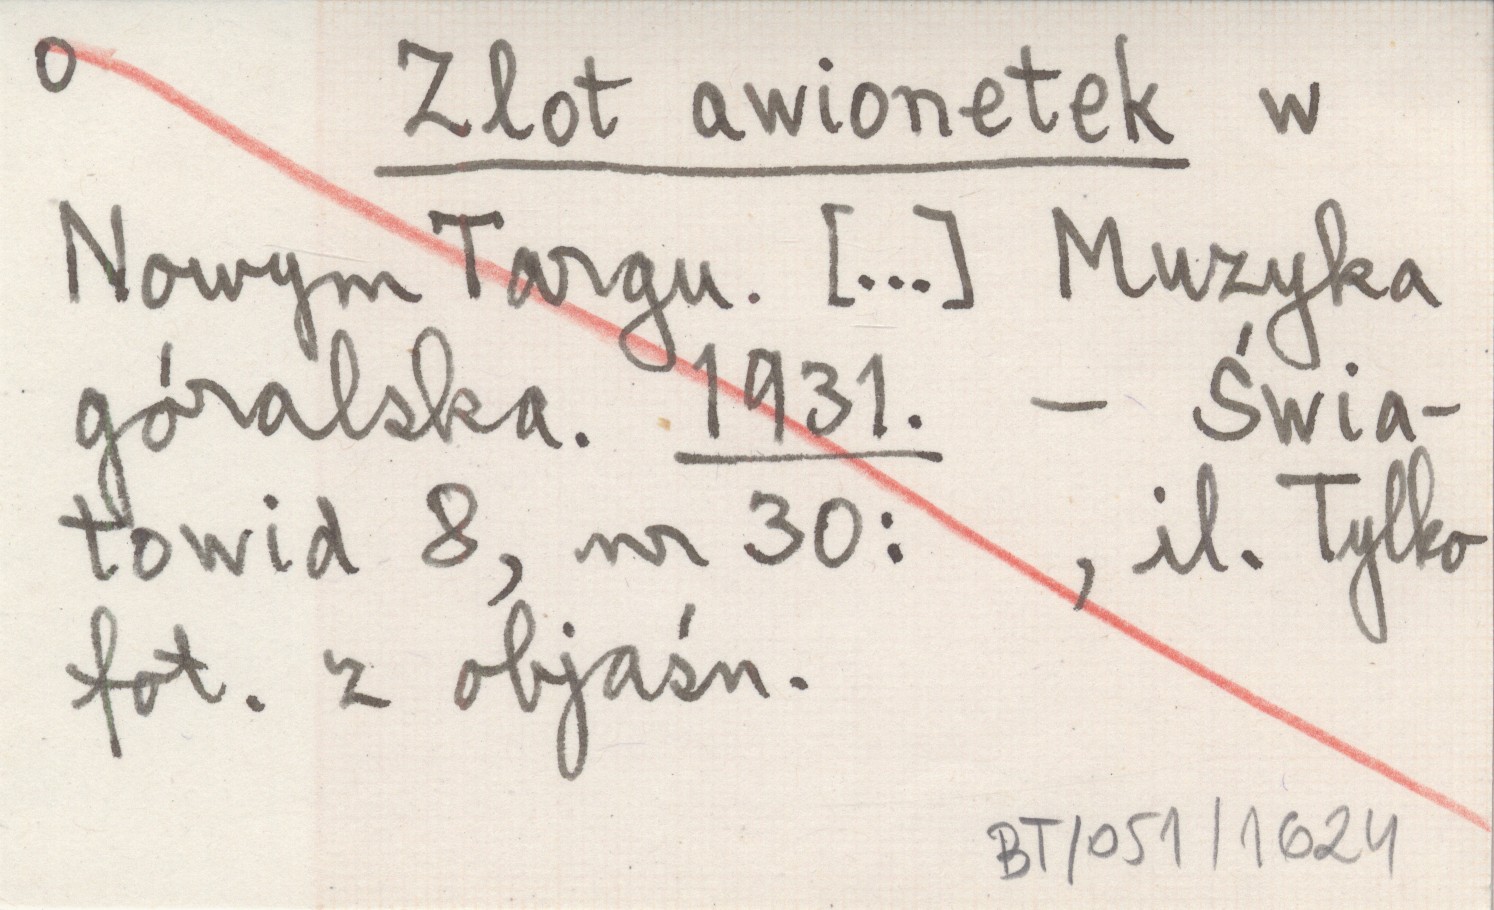 o Zlot awionetek w
Nowym Targu. [...] Muzyka
góralska. 1931. – Świa-
towid 8, nr 30: , il. Tylko
fot. z objaśn.
BT/051/1624